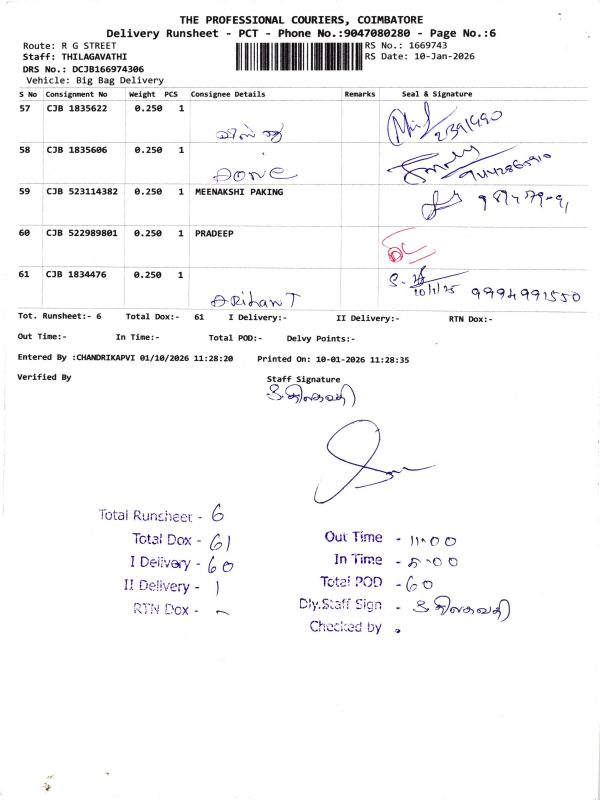 THE PROFESSIONAL COURIERS, COIMBATORE
Delivery Runsheet - PCT - Phone No.:9047080280 - Page No.:6
Route: R G STREET RS No.: 1669743
Staff: THILAGAVATHI RS Date: 10-Jan-2026
DRS No.: DCJB166974306
Vehicle: Big Bag Delivery
S No Consignment No Weight PCS Consignee Details Remarks Seal & Signature
57 CJB 1835622 0.250 1
58 CJB 1835606 0.250 1
59 CJB 523114382 0.250 1 MEENAKSHI PAKING
60 CJB 522989801 0.250 1 PRADEEP
DC
61 CJB 1834476 0.250 1
10/1/25 9994991550
ARihanT
Tot. Runsheet:- 6 Total Dox:- 61 I Delivery:- II Delivery:- RTN Dox:-
Out Time:- In Time:- Total POD:- Delvy Points:-
Entered By :CHANDRIKAPVI 01/10/2026 11:28:20 Printed On: 10-01-2026 11:28:35
Verified By Staff Signature
Total Runsheet - 6
Total Dox - 61 Out Time - 11.00
I Delivery - 60 In Time - 5.00
II Delivery - 1 Total POD - 60
RTN Dox - Dly.Staff Sign -
Checked by